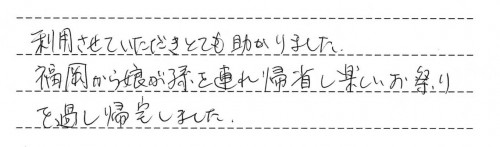 利用させていただきとても助かりました.
福岡から娘が孫を連れ帰省し楽しいお祭り
を過し帰宅しました.